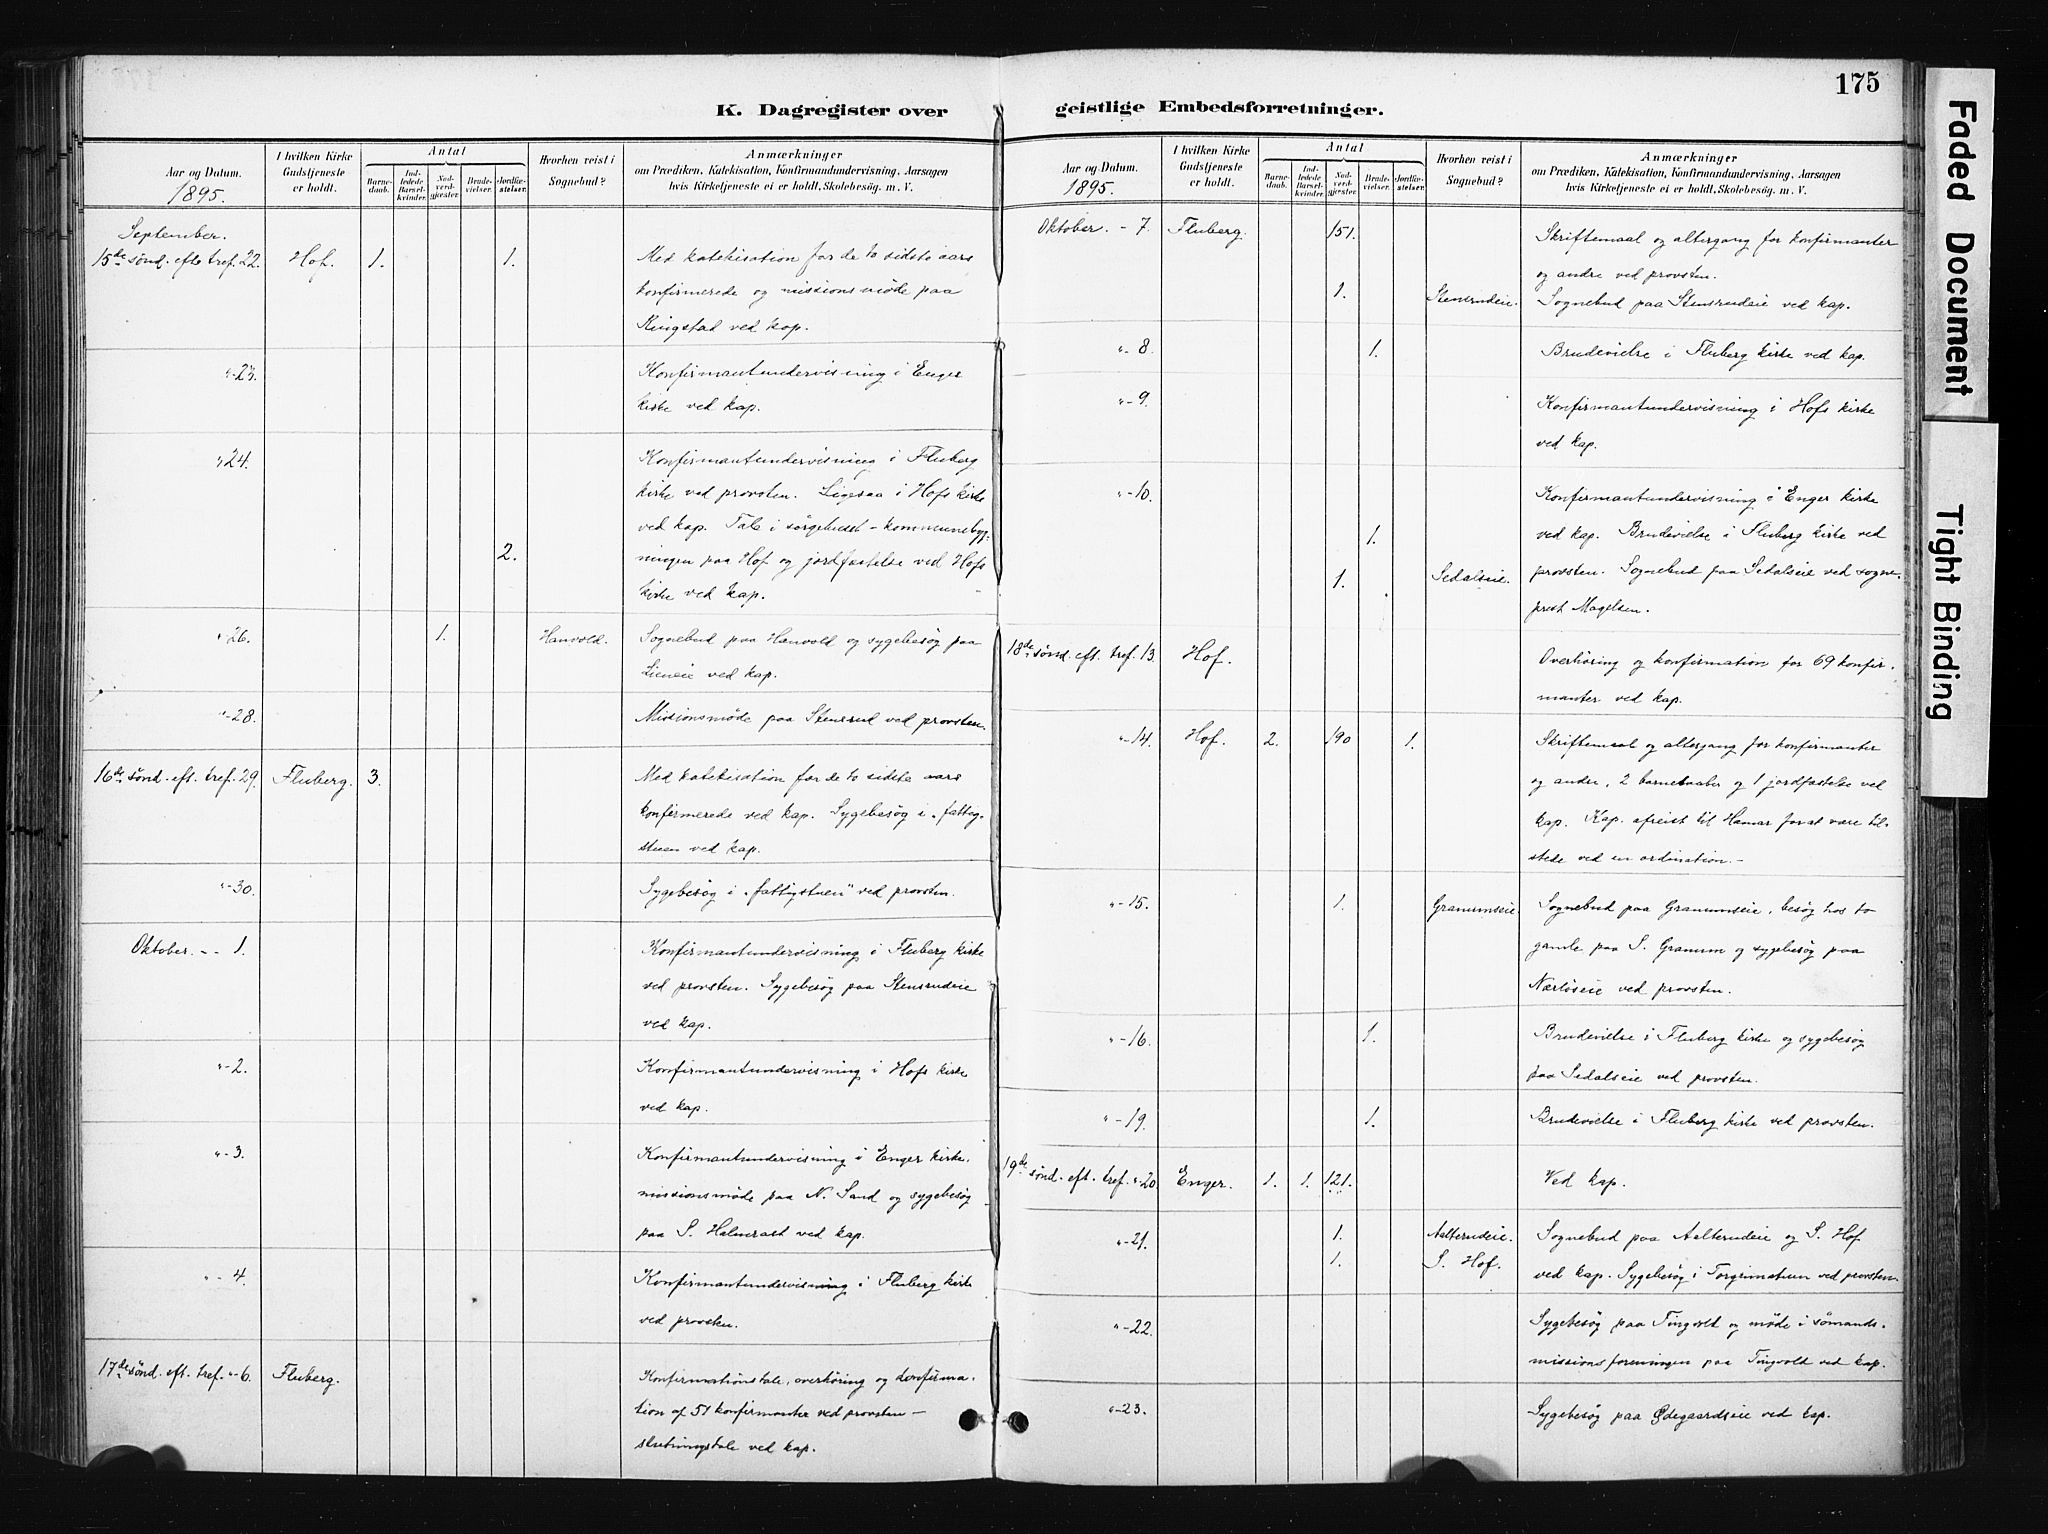 175
K. Dagregister over geistlige Embedsforretninger.
Faded Document
Tight Binding
Aar og Datum.
1895.
I hvilken Kirke Gudstjeneste er holdt.
Antal
Barnedaab.
Indledede Barselkvinder.
Nadverdgjester.
Brudevielser.
Jordfæstelser.
Hvorhen reist i Sognebud?
Anmærkninger
om Prædiken, Katekisation, Konfirmandundervisning, Aarsagen
hvis Kirketjeneste ei er holdt, Skolebesøg. m. V.
September.
15de sönd. efte tref. 22. Hof. 1. 1. Med katekisation for de to sidste aars
konfirmerede og missionsmöde paa
Ringstad ved kap.
"-23. Konfirmantundervisning i Enger
kirke ved kap.
"24. Konfirmantundervisning i Fluberg
kirke ved provsten. Ligesaa i Hofs kirke
ved kap. Tale i sörgehuset - kommunebyg-
2. ningen paa Hof og jordfæstelse ved Hofs
kirke ved kap.
"-26. 1. Hauvold. Sognebud paa Hauvold og sygebesög paa
ved kap.
"-28. Missionsmöde paa Stensrud ved provsten.
16de sönd. eft. tref. 29. Fluberg. 3. Med katekisation for de to sidste aars
konfirmerede ved kap. Sygebesög i „fattig-
stuen ved kap.
"-30. Sygebesög i „fattigstuen" ved provsten.
Oktober. - - 1. Konfirmantundervisning i Fluberg kirke
ved provsten. Sygebesög paa Stensrudeie
ved kap.
"-2. Konfirmantundervisning i Hofs kirke
ved kap.
"-3. Konfirmantundervisning i Enger kirke.
missionsmöde paa N. Sand og sygebesög
paa S. Halmrast ved kap.
"-4. Konfirmantundervisning i Fluberg kirke
ved provsten.
17de sönd. eft. tref. "-6. Fluberg. Konfirmationstale, overhöring og konfirma-
tion af 51 konfirmanter ved provsten -
slutningstale ved kap.
Aar og Datum.
1895.
I hvilken Kirke Gudstjeneste er holdt.
Antal
Barnedaab.
Indledede Barselkvinder.
Nadverdgjester.
Brudevielser.
Jordfæstelser.
Hvorhen reist i Sognebud?
Anmærkninger
om Prædiken, Katekisation, Konfirmandundervisning, Aarsagen
hvis Kirketjeneste ei er holdt, Skolebesøg. m. V.
Oktober. - 7. Fluberg. 151. Skriftemaal og altergang for konfirmanter
og andre ved provsten.
1. Stensrudeie. Sognebud paa Stensrudeie ved kap.
"-8. 1. Brudevielse i Fluberg kirke ved kap.
"-9. Konfirmantundervisning i Hofs kirke
ved kap.
"-10. Konfirmantundervisning i Enger kirke
1. ved kap. Brudevielse i Fluberg kirke ved
1. Sedalseie. provsten. Sognebud paa Sedalseie ved sogne-
prest Magelsen.
18de sönd. eft. tref. 13. Hof. Overhöring og konfirmation for 69 konfir-
manter ved kap.
"-14. Hof. 2. 190 1. Skriftemaal og altergang for konfirmanter
og andre, 2 barnedaaber og 1 jordfæstelse ved
kap. Kap. afreist til Hamar forat være til-
stede ved en ordination. -
"-15. 1. Granumseie. Sognebud paa Granumseie, besög hos to
gamle paa S. Granum og sygebesög paa
Nærlöseie ved provsten.
"-16. 1. Brudevielse i Fluberg kirke og sygebesög
paa Sedalseie ved provsten.
"-19. 1. Brudevielse i Fluberg kirke ved provsten.
19de sönd. eft. tref. "-20. Enger. 1. 1. 121. Ved kap.
"-21. 1. Aalterudeie. Sognebud paa Aalterudeie og S. Hof
1. S. Hof. ved kap. Sygebesög i ved provsten.
"-22. Sygebesög paa Tingvold og möde i sömands-
missionsforeningen paa Tingvold ved kap.
"-23. Sygebesög paa Ødegaardseie ved kap.